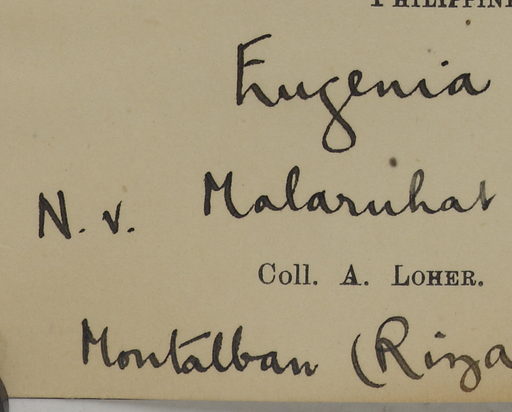 PHILIPPINE
Eugenia
N. v. Malaruhat
Coll. A. Loher.
Montalban (Riza